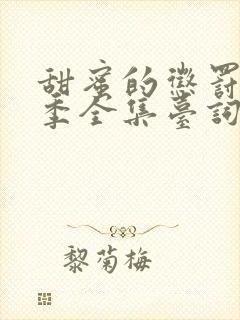 甜蜜的懲罰
季全集臺詞
黎菊梅